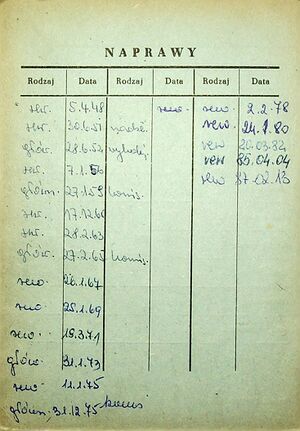 NAPRAWY
Rodzaj Data Rodzaj Data Rodzaj Data
rew. 5.4.48 rew. rew. 2.2.78
rew. 30.6.51 rew 24.2.80
głów. 28.6.54 rew 20.03.82
rew. 7.1.56 rew 85.04.04
główn. 27.1.59 komis. rew 87.02.13
rew. 17.12.60
rew. 28.2.63
głów. 27.2.65 komis.
rew 26.1.67
rew. 25.1.69
rew. 18.3.71
głów. 31.1.73
rew 11.1.75
główn. 31.12.75 komis